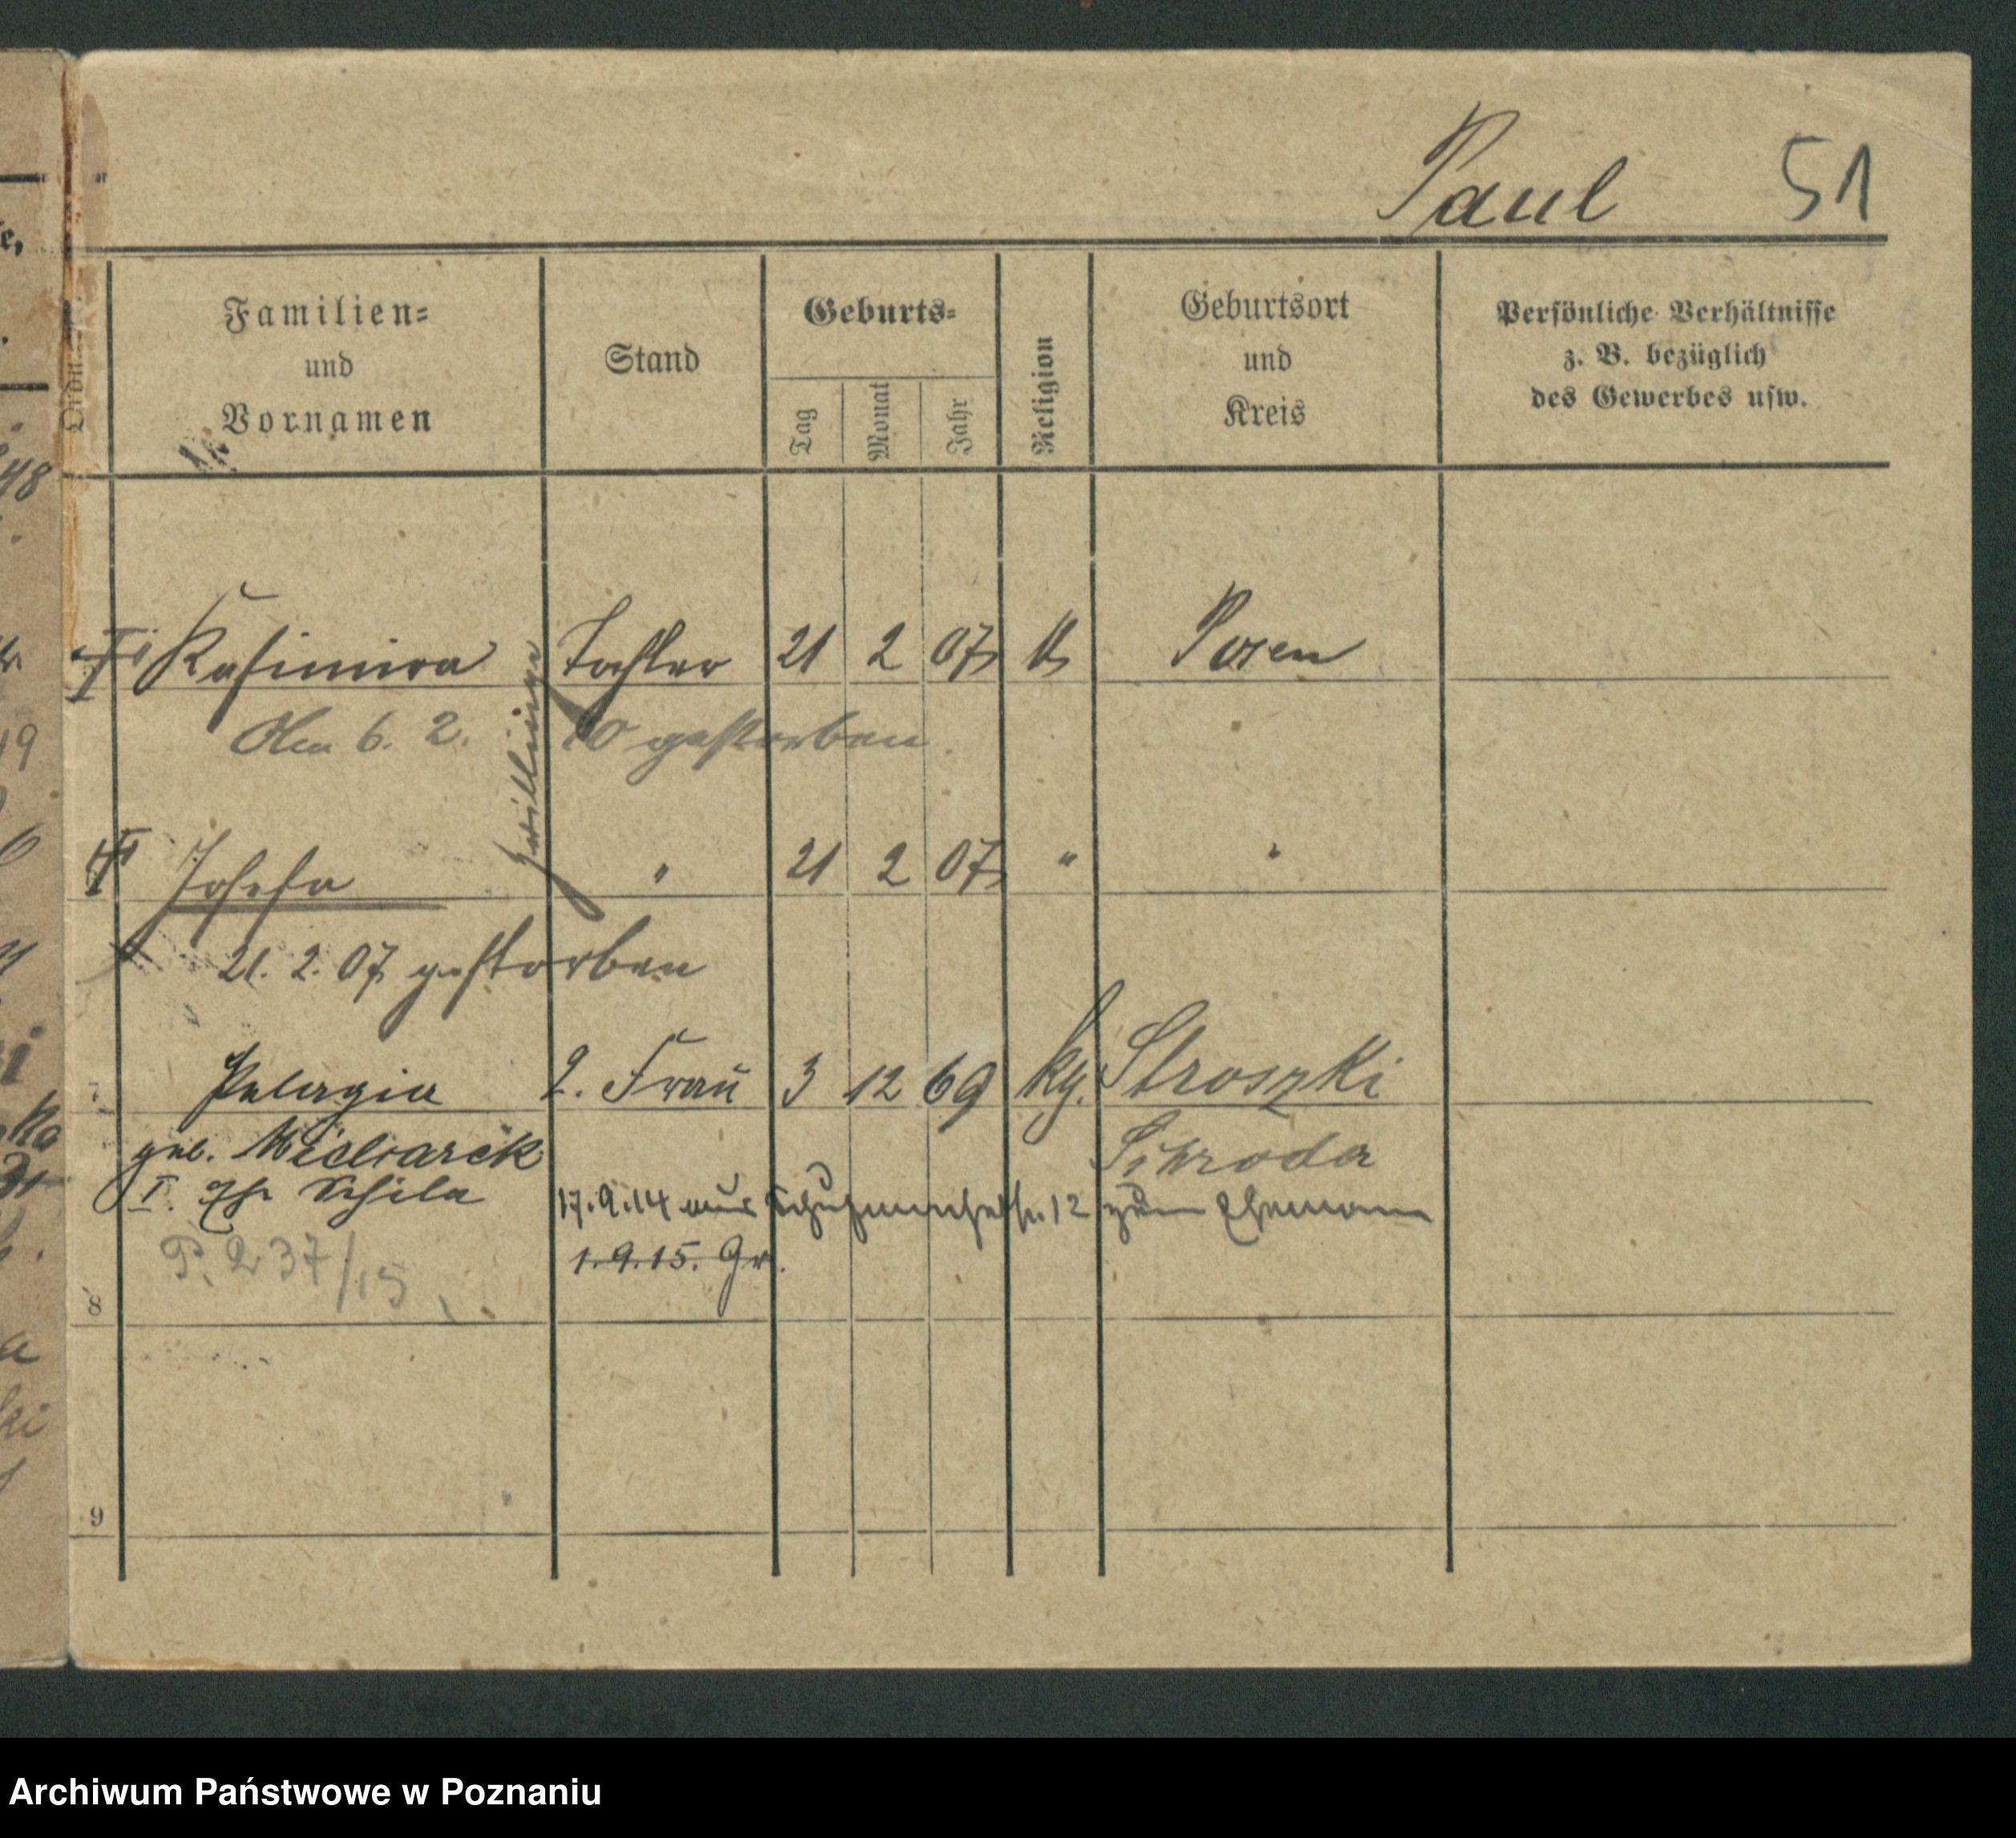 Paul 51
Familien=
und
Vornamen
Stand
Geburts=
Tag
Monat
Jahr
Religion
Geburtsort
und
Kreis
Persönliche Verhältnisse
z. B. bezüglich
des Gewerbes usw.
Kasimira Tochter 21 2 07 k Posen
Am 6. 2. 10 gestorben
Zwillinge
Josefa " 21 2 07 " "
21. 2. 07 gestorben
7 Pelagia 2. Frau 3 12 69 kg. Stroszki
geb. Michrarek Schroda
I. Eh. Schila 17.9.14 aus 12 zum Ehemann
P. 237/15 1.9.15. Gr.
8
9
Archiwum Państwowe w Poznaniu